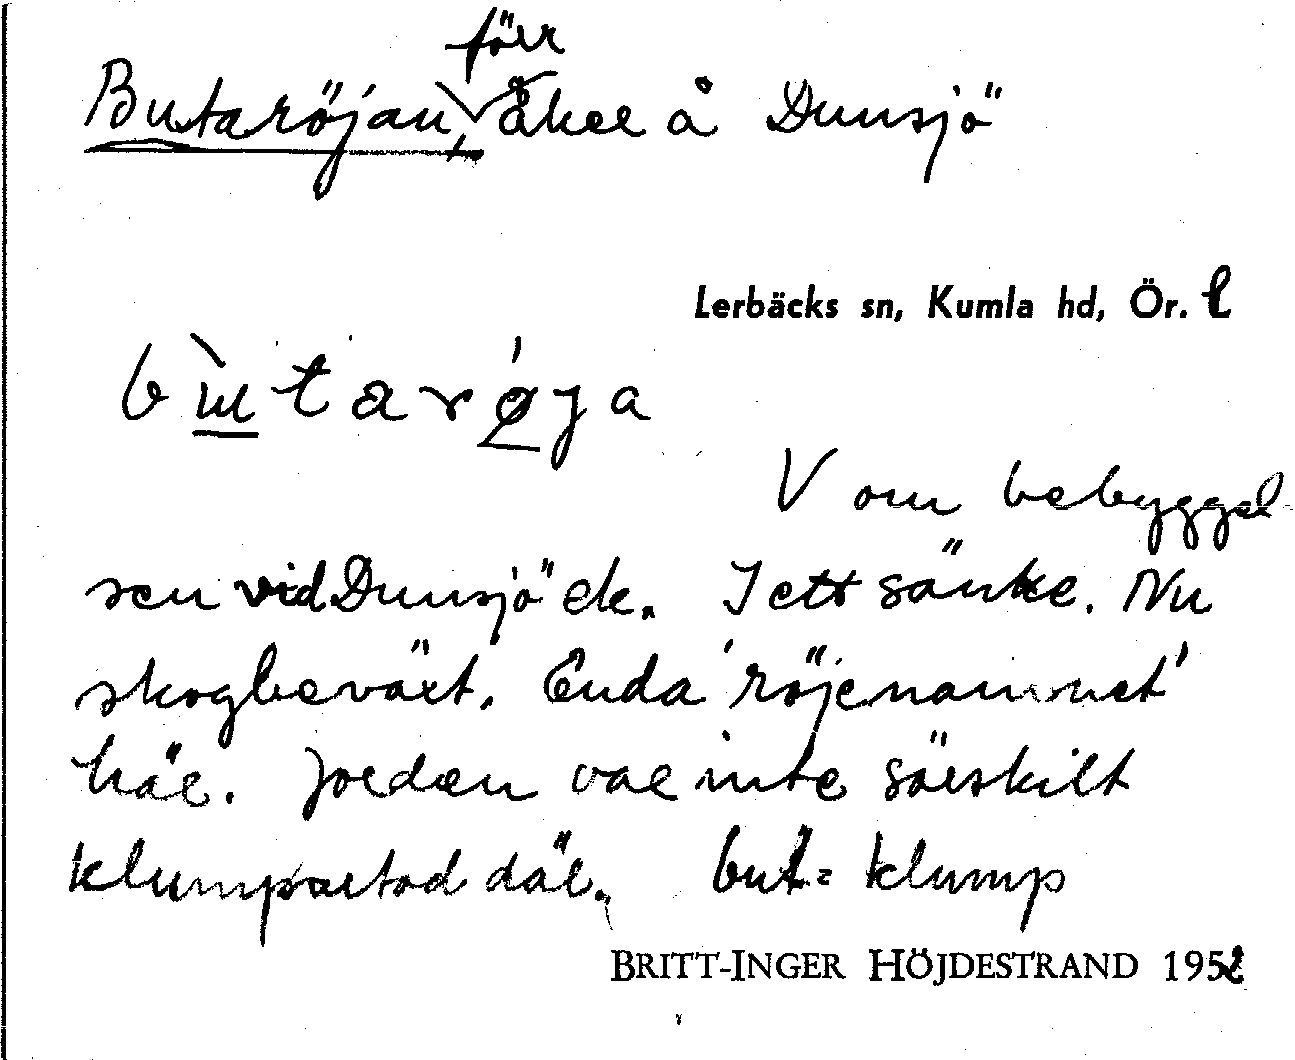 förr
Butaröjan, åker å Dunsjö
Lerbäcks sn, Kumla hd, Ör. l
V om bebyggel
sen vid Dunsjö ek. I ett sänke. Nu
skogbeväxt. Enda 'röjenamnet'
här. Jorden var inte särskilt
klumpartad där. but = klump
BRITT-INGER HÖJDESTRAND 1952